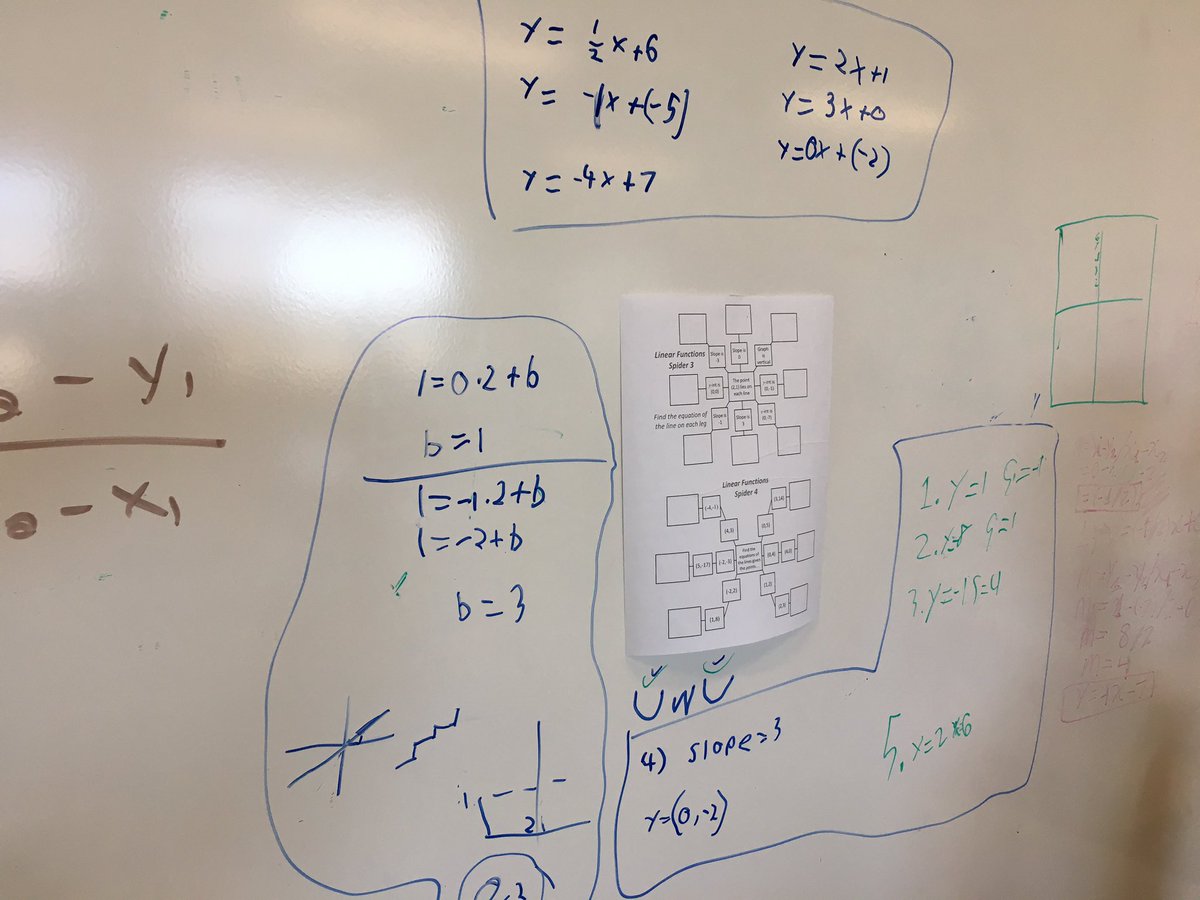 y = 1/2 x + 6
y = -1x + (-5)
y = -4x + 7
y = 2x + 1
y = 3x + 0
y = 0x + (-2)
- y₁
- x₁
1 = 0·2 + b
b = 1
1 = -1·2 + b
1 = -2 + b
b = 3
1
2
Linear Functions
Spider 3
Find the equation of
the line on each leg
Slope is
0
Graph
is
vertical
y-int is
(0,0)
The point
(2,1) lies on
each line
y-int is
(0,-1)
Slope is
-1
Slope is
3
y-int is
(0,-7)
Linear Functions
Spider 4
(-4,-1)
(4,3)
(3,14)
(0,5)
(5,-17)
(-2,-3)
Find the
equations of
the lines given
the points.
(0,4)
(4,0)
(-2,2)
(1,2)
(1,8)
(2,3)
UwU
4) slope = 3
y = (0, -2)
1. y = 1
3. y = -1 S = 4
5. x = 2
m = 8/2
m = 4